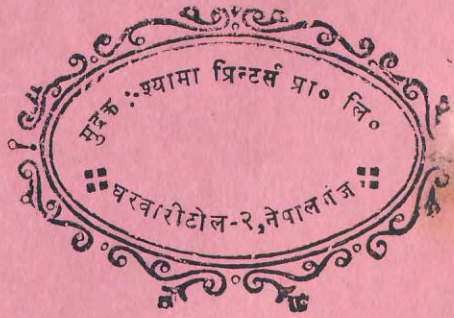 मुद्रक :श्यामा प्रिन्टर्स प्रा० लि०
घरवारीटोल-२,नेपालगंज